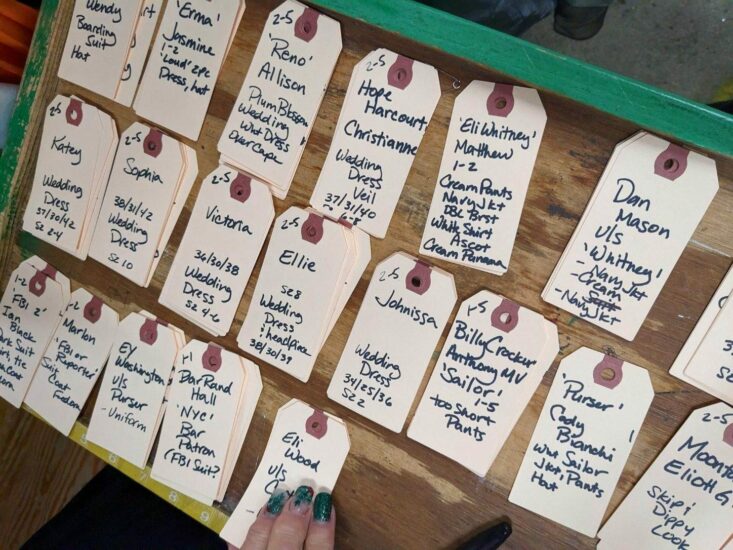 Wendy
Boarding
Suit
Hat
'Erma'
Jasmine
1-2
'Loud' 2pc
Dress, hat
2-5
'Reno'
Allison
Plum Blossom
Wedding
Wht Dress
Over Cape
Hope
Harcourt
Christianne
Wedding
Dress
Veil
37/31/40
'Eli Whitney'
Matthew
1-2
Cream Pants
Navy Jkt
DBL Brst
White Shirt
Ascot
Cream Panama
Dan
Mason
u/s
'Whitney'
- Navy Jkt
- Cream
- Navy Jkt
2-5
Katey
Wedding
Dress
37/30/42
Sz 2-4
2-5
Sophia
38/31/42
Wedding
Dress
Sz 10
2-5
Victoria
36/30/38
Wedding
Dress
Sz 4-6
2-5
Ellie
SZ 8
Wedding
Dress
+ headpiece
38/30/39
2-5
Johnissa
Wedding
Dress
34/25/36
Sz 2
Billy Crocker
Anthony MV
'Sailor' 1-5
too Short
Pants
'Purser'
Cody
Bianchi
Wht Sailor
Jkt, Pants
Hat
2-5
Eliott G
Skip i
Dippy
Look
1-2
'FBI 2'
Ian
Black
Suit
1-2
Marlon
'FBI or
Reporter'
Suit
Coat
Fedora
Ey
Washington
u/s
Purser
- Uniform
Bar Rand
Hall
'NYC'
Bar
Patron
(FBI Suit?
Eli
Wood
u/s